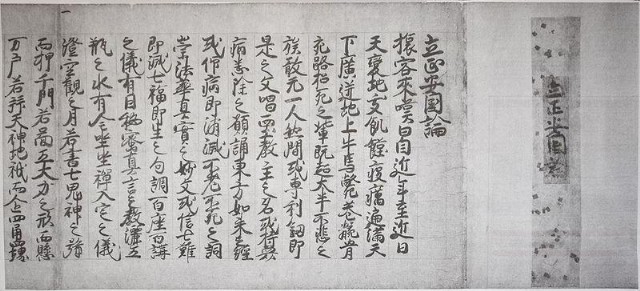 立正安国論
立正安国論
旅客來嘆曰自近年至近日
天変地夭飢饉疫癘遍満天
下廣迸地上牛馬斃巷骸骨
充路招死之輩既超大半不悲之
族敢无一人然間或専利釼即
是之文唱西土教主之名或恃衆
病悉除之願誦東方如来之經
或仰病即消滅不老不死之詞
崇法華真實之妙文或信七難
即滅七福即生之句調百座百講
之儀有因秘密真言之教灑五
瓶之水有全坐禅入定之儀
澄空觀之月若書七鬼神之号
而押千門若圖五大力之形而懸
万戸若拜天神地祇而企四角四堺
一